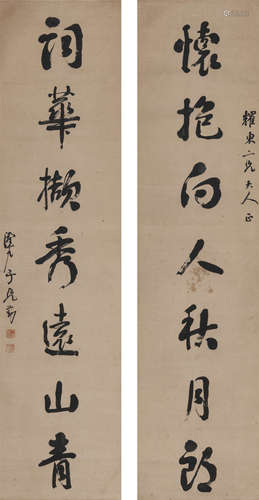 懷抱向人秋月朗
耀東二兄大人正
詞華擷秀遠山青